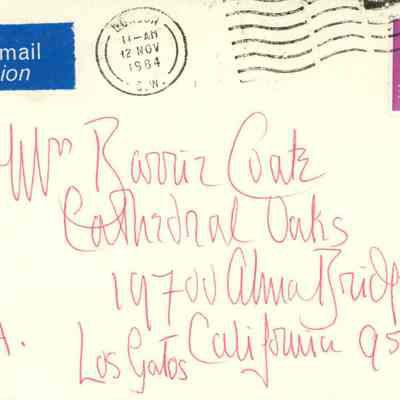 mail
ion
LONDON
11-AM
12 NOV
1984
S.W.
Mrs Barrie Coate
Cathedral Oaks
19700 Alma Bridg
A.
Los Gatos California 95